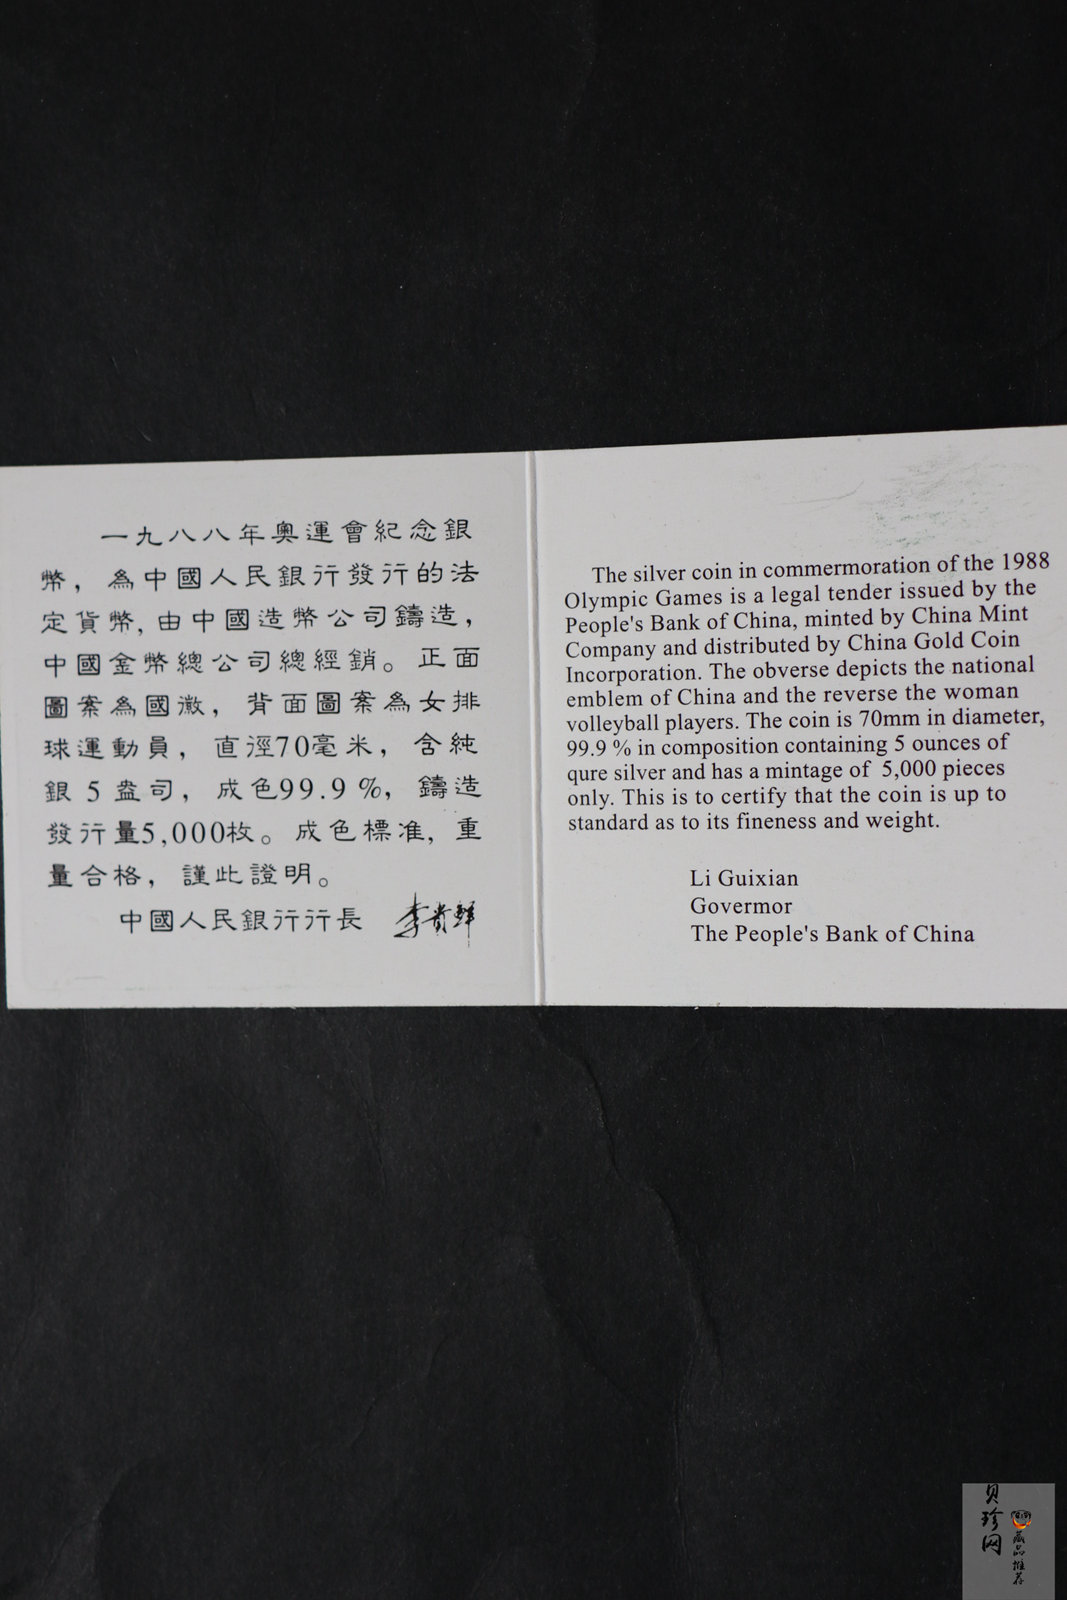 一九八八年奧運會紀念銀
幣，為中國人民銀行發行的法
定貨幣，由中國造幣公司鑄造，
中國金幣總公司總經銷。正面
圖案為國徽，背面圖案為女排
球運動員，直徑70毫米，含純
銀5盎司，成色99.9%，鑄造
發行量5,000枚。成色標准，重
量合格，謹此證明。
中國人民銀行行長 李貴鮮
The silver coin in commermoration of the 1988
Olympic Games is a legal tender issued by the
People's Bank of China, minted by China Mint
Company and distributed by China Gold Coin
Incorporation. The obverse depicts the national
emblem of China and the reverse the woman
volleyball players. The coin is 70mm in diameter,
99.9 % in composition containing 5 ounces of
qure silver and has a mintage of 5,000 pieces
only. This is to certify that the coin is up to
standard as to its fineness and weight.
Li Guixian
Govermor
The People's Bank of China
贝珍网
藏品推荐